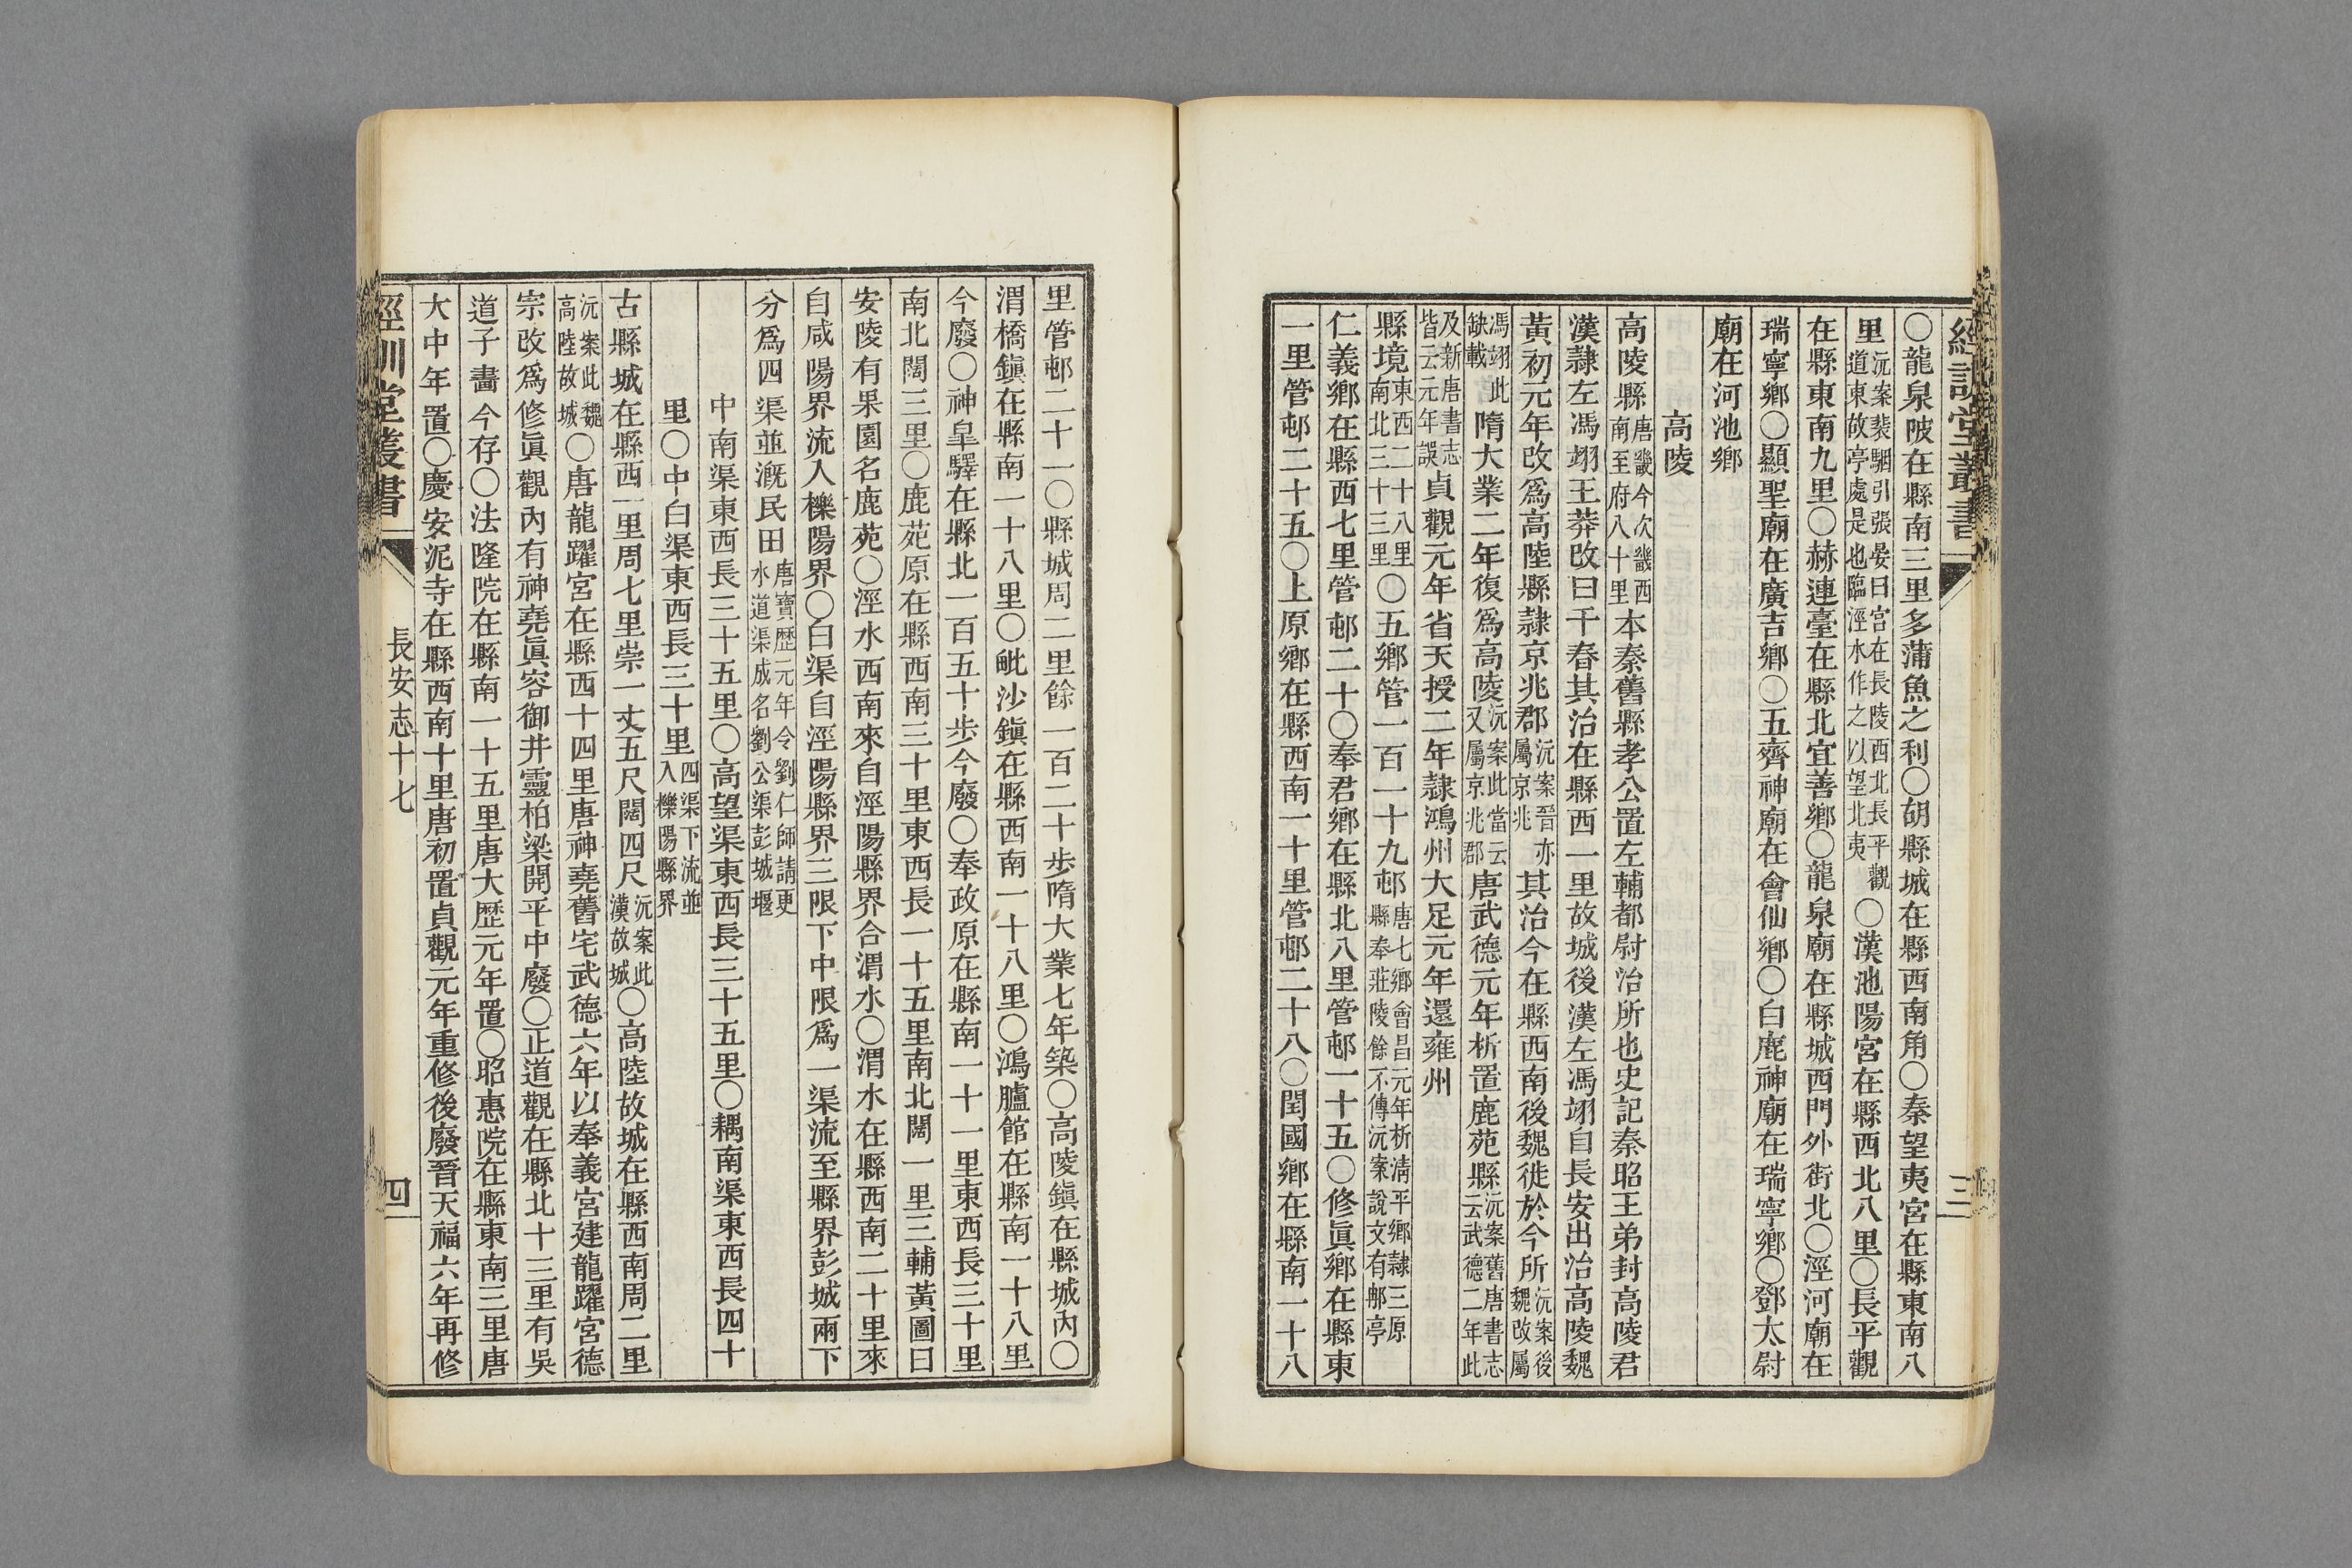 經訓堂叢書 三
〇龍泉陂在縣南三里多蒲魚之利〇胡縣城在縣西南角〇秦望夷宮在縣東南八
里沅案裴駰引張晏曰宮在長陵西北長平觀道東故亭處是也臨涇水作之以望北夷〇漢池陽宮在縣西北八里〇長平觀
在縣東南九里〇赫連臺在縣北宜善鄉〇龍泉廟在縣城西門外街北〇涇河廟在
瑞寧鄉〇顯聖廟在廣吉鄉〇五齊神廟在會仙鄉〇白鹿神廟在瑞寧鄉〇鄧太尉
廟在河池鄉
高陵
高陵縣唐畿今次畿西南至府八十里本秦舊縣孝公置左輔都尉治所也史記秦昭王弟封高陵君
漢隸左馮翊王莽改曰千春其治在縣西一里故城後漢左馮翊自長安出治高陵魏
黃初元年改爲高陸縣隷京兆郡沅案晉亦屬京兆其治今在縣西南後魏徙於今所沅案後魏改屬
馮翊此缺載隋大業二年復爲高陵沅案此當云又屬京兆郡唐武德元年析置鹿苑縣沅案舊唐書志云武德二年此
及新唐書志皆云元年誤貞觀元年省天授二年隸鴻州大足元年還雍州
縣境東西二十八里南北三十三里〇五鄉管一百一十九邨唐七鄉會昌元年析清平鄉隸三原縣奉莊陵餘不傳沅案說文有邮亭
仁義鄉在縣西七里管邨二十〇奉君鄉在縣北八里管邨一十五〇修眞鄉在縣東
一里管邨二十五〇上原鄉在縣西南一十里管邨二十八〇閏國鄉在縣南一十八
里管邨二十一〇縣城周二里餘一百二十步隋大業七年築〇高陵鎭在縣城內〇
渭橋鎭在縣南一十八里〇毗沙鎭在縣西南一十八里〇鴻臚館在縣南一十八里
今廢〇神皐驛在縣北一百五十步今廢〇奉政原在縣南一十一里東西長三十里
南北闊三里〇鹿苑原在縣西南三十里東西長一十五里南北闊一里三輔黃圖曰
安陵有果園名鹿苑〇涇水西南來自涇陽縣界合渭水〇渭水在縣西南二十里來
自咸陽界流入櫟陽界〇白渠自涇陽縣界三限下中限爲一渠流至縣界彭城兩下
分爲四渠並漑民田唐寶歷元年令劉仁師請更水道渠成名劉公渠彭城堰
中南渠東西長三十五里〇高望渠東西長三十五里〇耦南渠東西長四十
里〇中白渠東西長三十里四渠下流並入櫟陽縣界
古縣城在縣西一里周七里崇一丈五尺闊四尺沅案此漢故城〇高陸故城在縣西南周二里
沅案此魏高陸故城〇唐龍躍宮在縣西十四里唐神堯舊宅武德六年以奉義宮建龍躍宮德
宗改爲修眞觀內有神堯眞容御井靈柏梁開平中廢〇正道觀在縣北十三里有吳
道子畵今存〇法隆院在縣南一十五里唐大歴元年置〇昭惠院在縣東南三里唐
大中年置〇慶安泥寺在縣西南十里唐初置貞觀元年重修後廢晉天福六年再修
經訓堂叢書 長安志十七 四